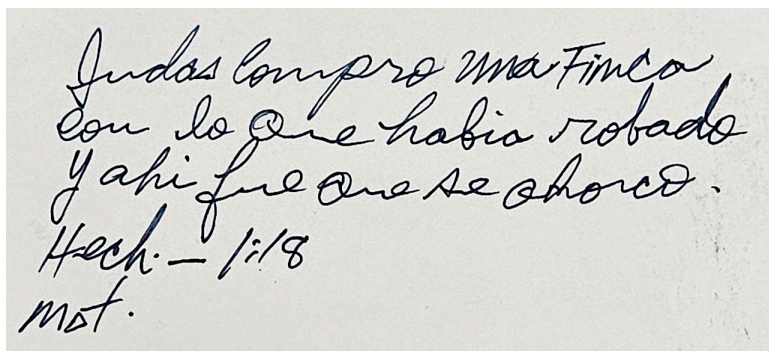 Judas Compro una Finca
con lo Que habia robado
y ahi fue Que se ahorco.
Hech. — 1:18
Mat.